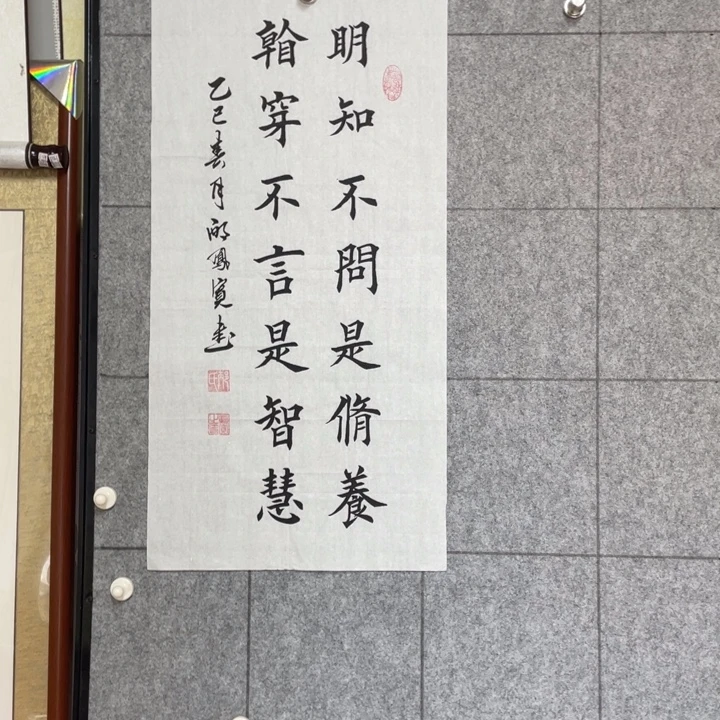 明知不問是脩養
穿不言是智慧
乙巳春月鳳書